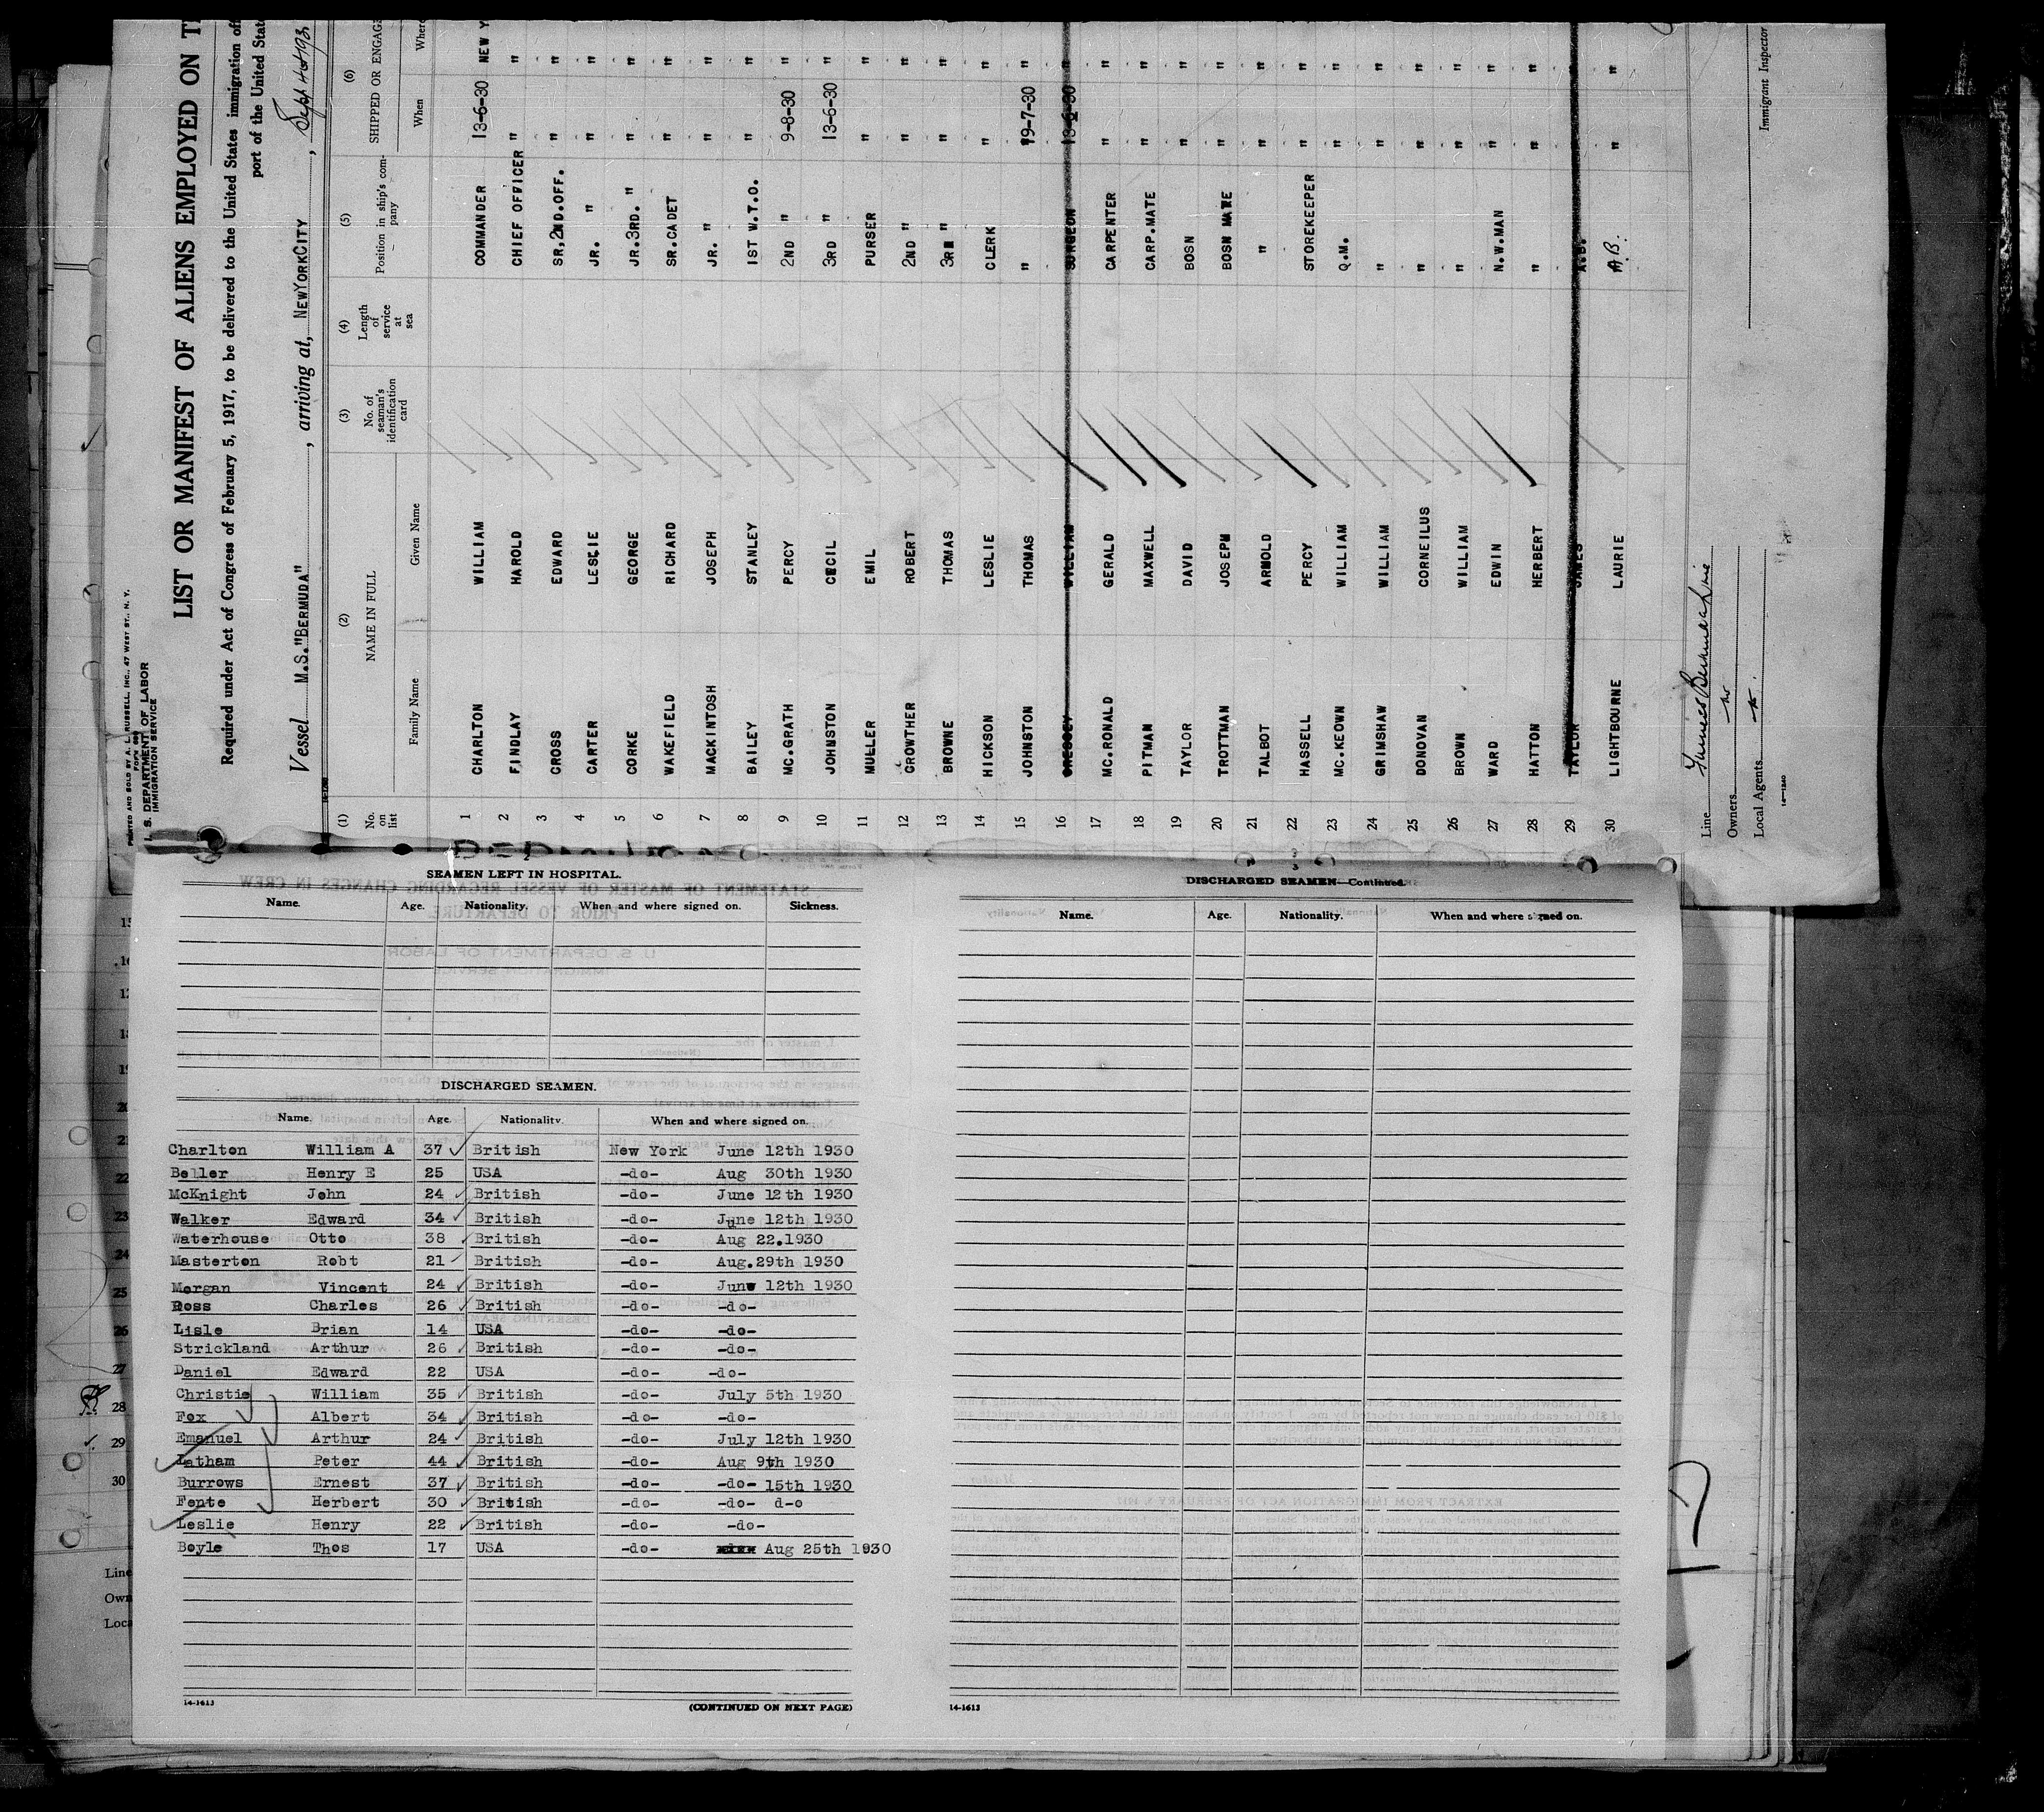 PRINTED AND SOLD BY A. L. RUSSELL, INC., 47 WEST ST., N. Y.
FORM 689
U. S. DEPARTMENT OF LABOR
IMMIGRATION SERVICE
LIST OR MANIFEST OF ALIENS EMPLOYED ON
Required under Act of Congress of February 5, 1917, to be delivered to the United States immigration
port of the United
Vessel M.S."BERMUDA" , arriving at, NEWYORKCITY , Sept
(1) (2) (3) (4) (5) (6)
No. on list NAME IN FULL No. of seaman's identification card Length of service at sea Position in ship's company SHIPPED OR
Family Name Given Name When
1 CHARLTON WILLIAM COMMANDER 13-6-30 NEW Y
2 FINDLAY HAROLD CHIEF OFFICER " "
3 CROSS EDWARD SR,2ND.OFF. " "
4 CARTER LESLIE JR. " " "
5 CORKE GEORGE JR.3RD. " " "
6 WAKEFIELD RICHARD SR.CADET " "
7 MACKINTOSH JOSEPH JR. " " "
8 BAILEY STANLEY 1ST W.T.O. " "
9 MC.GRATH PERCY 2ND " 9-8-30 "
10 JOHNSTON CECIL 3RD " 13-6-30 "
11 MULLER EMIL PURSER " "
12 CROWTHER ROBERT 2ND " " "
13 BROWNE THOMAS 3RD " " "
14 HICKSON LESLIE CLERK " "
15 JOHNSTON THOMAS " 19-7-30 "
16 WILLIAM SURGEON 13-6-30 "
17 MC.RONALD GERALD CARPENTER " "
18 PITMAN MAXWELL CARP.MATE " "
19 TAYLOR DAVID BOSN " "
20 TROTTMAN JOSEPH BOSN MATE " "
21 TALBOT ARNOLD " " "
22 HASSELL PERCY STOREKEEPER " "
23 MC.KEOWN WILLIAM Q.M. " "
24 GRIMSHAW WILLIAM " " "
25 DONOVAN CORNEILUS " " "
26 BROWN WILLIAM " " "
27 WARD EDWIN N.W.MAN " "
28 HATTON HERBERT " " "
29 TAYLOR JAMES A.B. " "
30 LIGHTBOURNE LAURIE A.B. " "
Line Furness Bermuda Line
Owners do
Local Agents do
Immigrant Inspector
14-1240
SEAMEN LEFT IN HOSPITAL.
Name. Age. Nationality. When and where signed on. Sickness.
DISCHARGED SEAMEN.
Name. Age. Nationality. When and where signed on.
Charlton William A 37 British New York June 12th 1930
Beller Henry E 25 USA -do- Aug 30th 1930
McKnight John 24 British -do- June 12th 1930
Walker Edward 34 British -do- June 12th 1930
Waterhouse Otto 38 British -do- Aug 22.1930
Masterton Robt 21 British -do- Aug.29th 1930
Morgan Vincent 24 British -do- June 12th 1930
Ross Charles 26 British -do- -do-
Lisle Brian 14 USA -do- -do-
Strickland Arthur 26 British -do- -do-
Daniel Edward 22 USA -do- -do-
Christie William 35 British -do- July 5th 1930
Fox Albert 34 British -do- -do-
Emanuel Arthur 24 British -do- July 12th 1930
Latham Peter 44 British -do- Aug 9th 1930
Burrows Ernest 37 British -do- -do- 15th 1930
Fente Herbert 30 British -do- -do- d-o
Leslie Henry 22 British -do- -do-
Boyle Thos 17 USA -do- Aug 25th 1930
14-1613
(CONTINUED ON NEXT PAGE)
DISCHARGED SEAMEN—Continued.
Name. Age. Nationality. When and where signed on.
14-1613
20
21
22
23
24
25
26
27
28
29
30
Line
Own
Loca